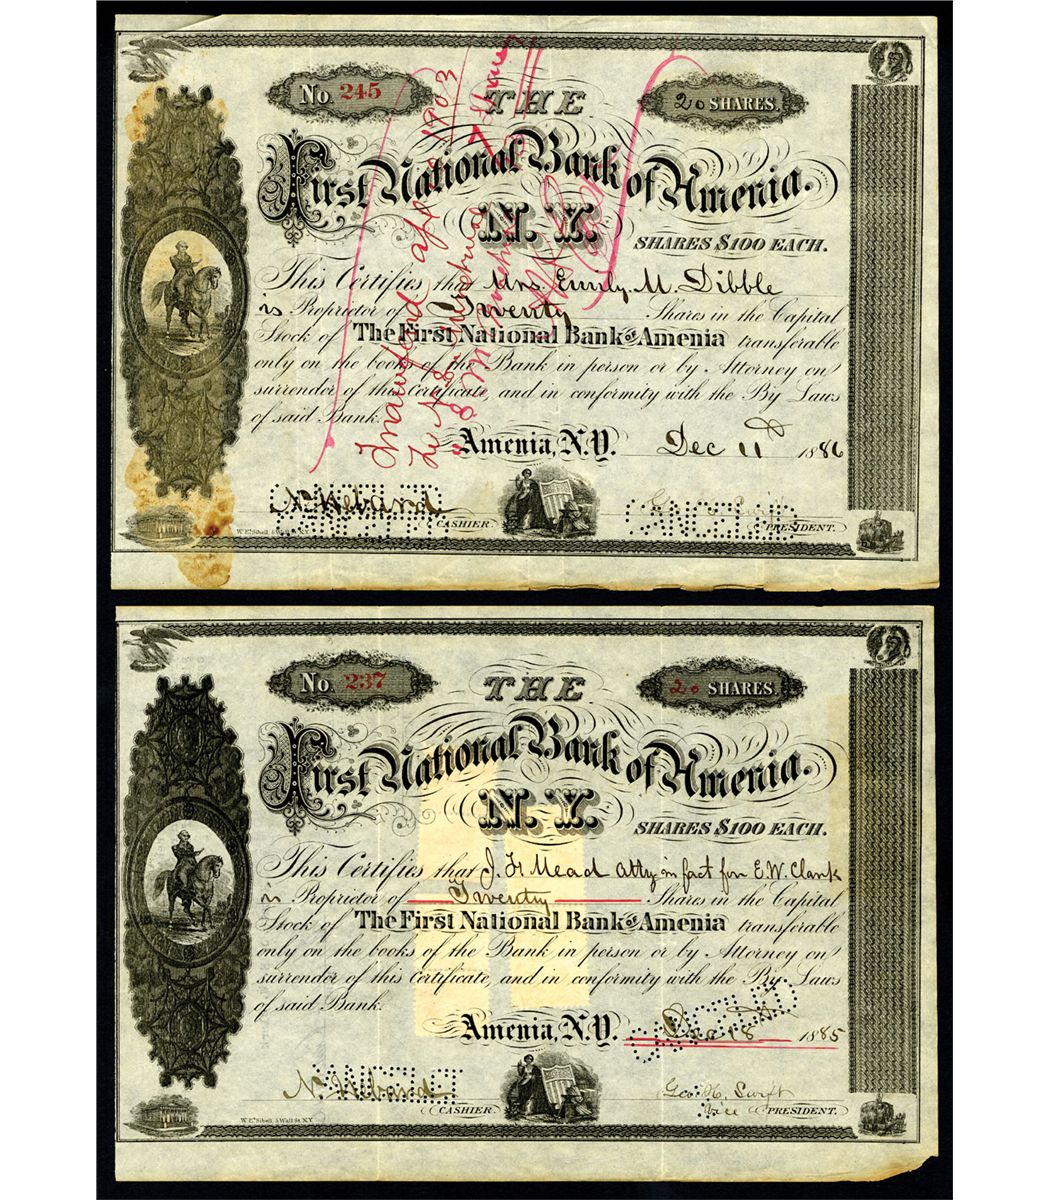 No. 245
THE
20 SHARES.
First National Bank of Amenia.
N. Y.
SHARES $100 EACH.
This Certifies that Mrs. Emily. M. Dibble
is Proprietor of Twenty Shares in the Capital
Stock of The First National Bank of Amenia transferable
only on the books of the Bank in person or by Attorney on
surrender of this Certificate, and in conformity with the By Laws
of said Bank.
Amenia, N.Y. Dec 11 1886
CASHIER.
PRESIDENT.
CANCELLED
W. E. Sibell, 5 Wall St. N.Y.
1903
No. 237
THE
20 SHARES.
First National Bank of Amenia.
N. Y.
SHARES $100 EACH.
This Certifies that J. H. Mead Atty in fact for E. W. Clark
is Proprietor of Twenty Shares in the Capital
Stock of The First National Bank of Amenia transferable
only on the books of the Bank in person or by Attorney on
surrender of this Certificate, and in conformity with the By Laws
of said Bank.
Amenia, N.Y. 18 1885
Geo. H. Swift
CASHIER.
Vice PRESIDENT.
W. E. Sibell, 5 Wall St. N.Y.